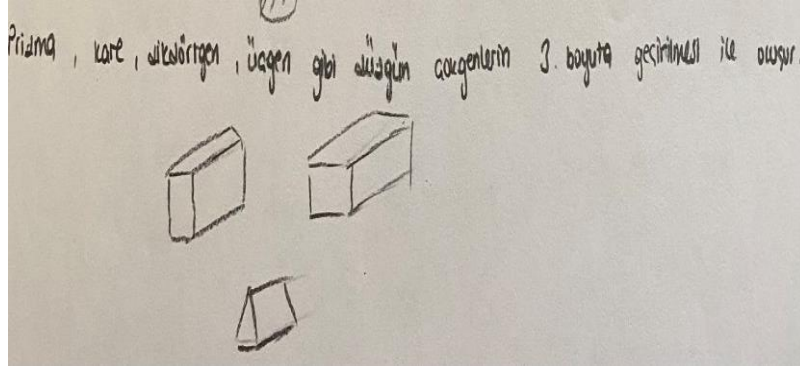 Prizma, kare, dikdörtgen, üçgen gibi düzgün çokgenlerin 3. boyuta geçirilmesi ile oluşur.